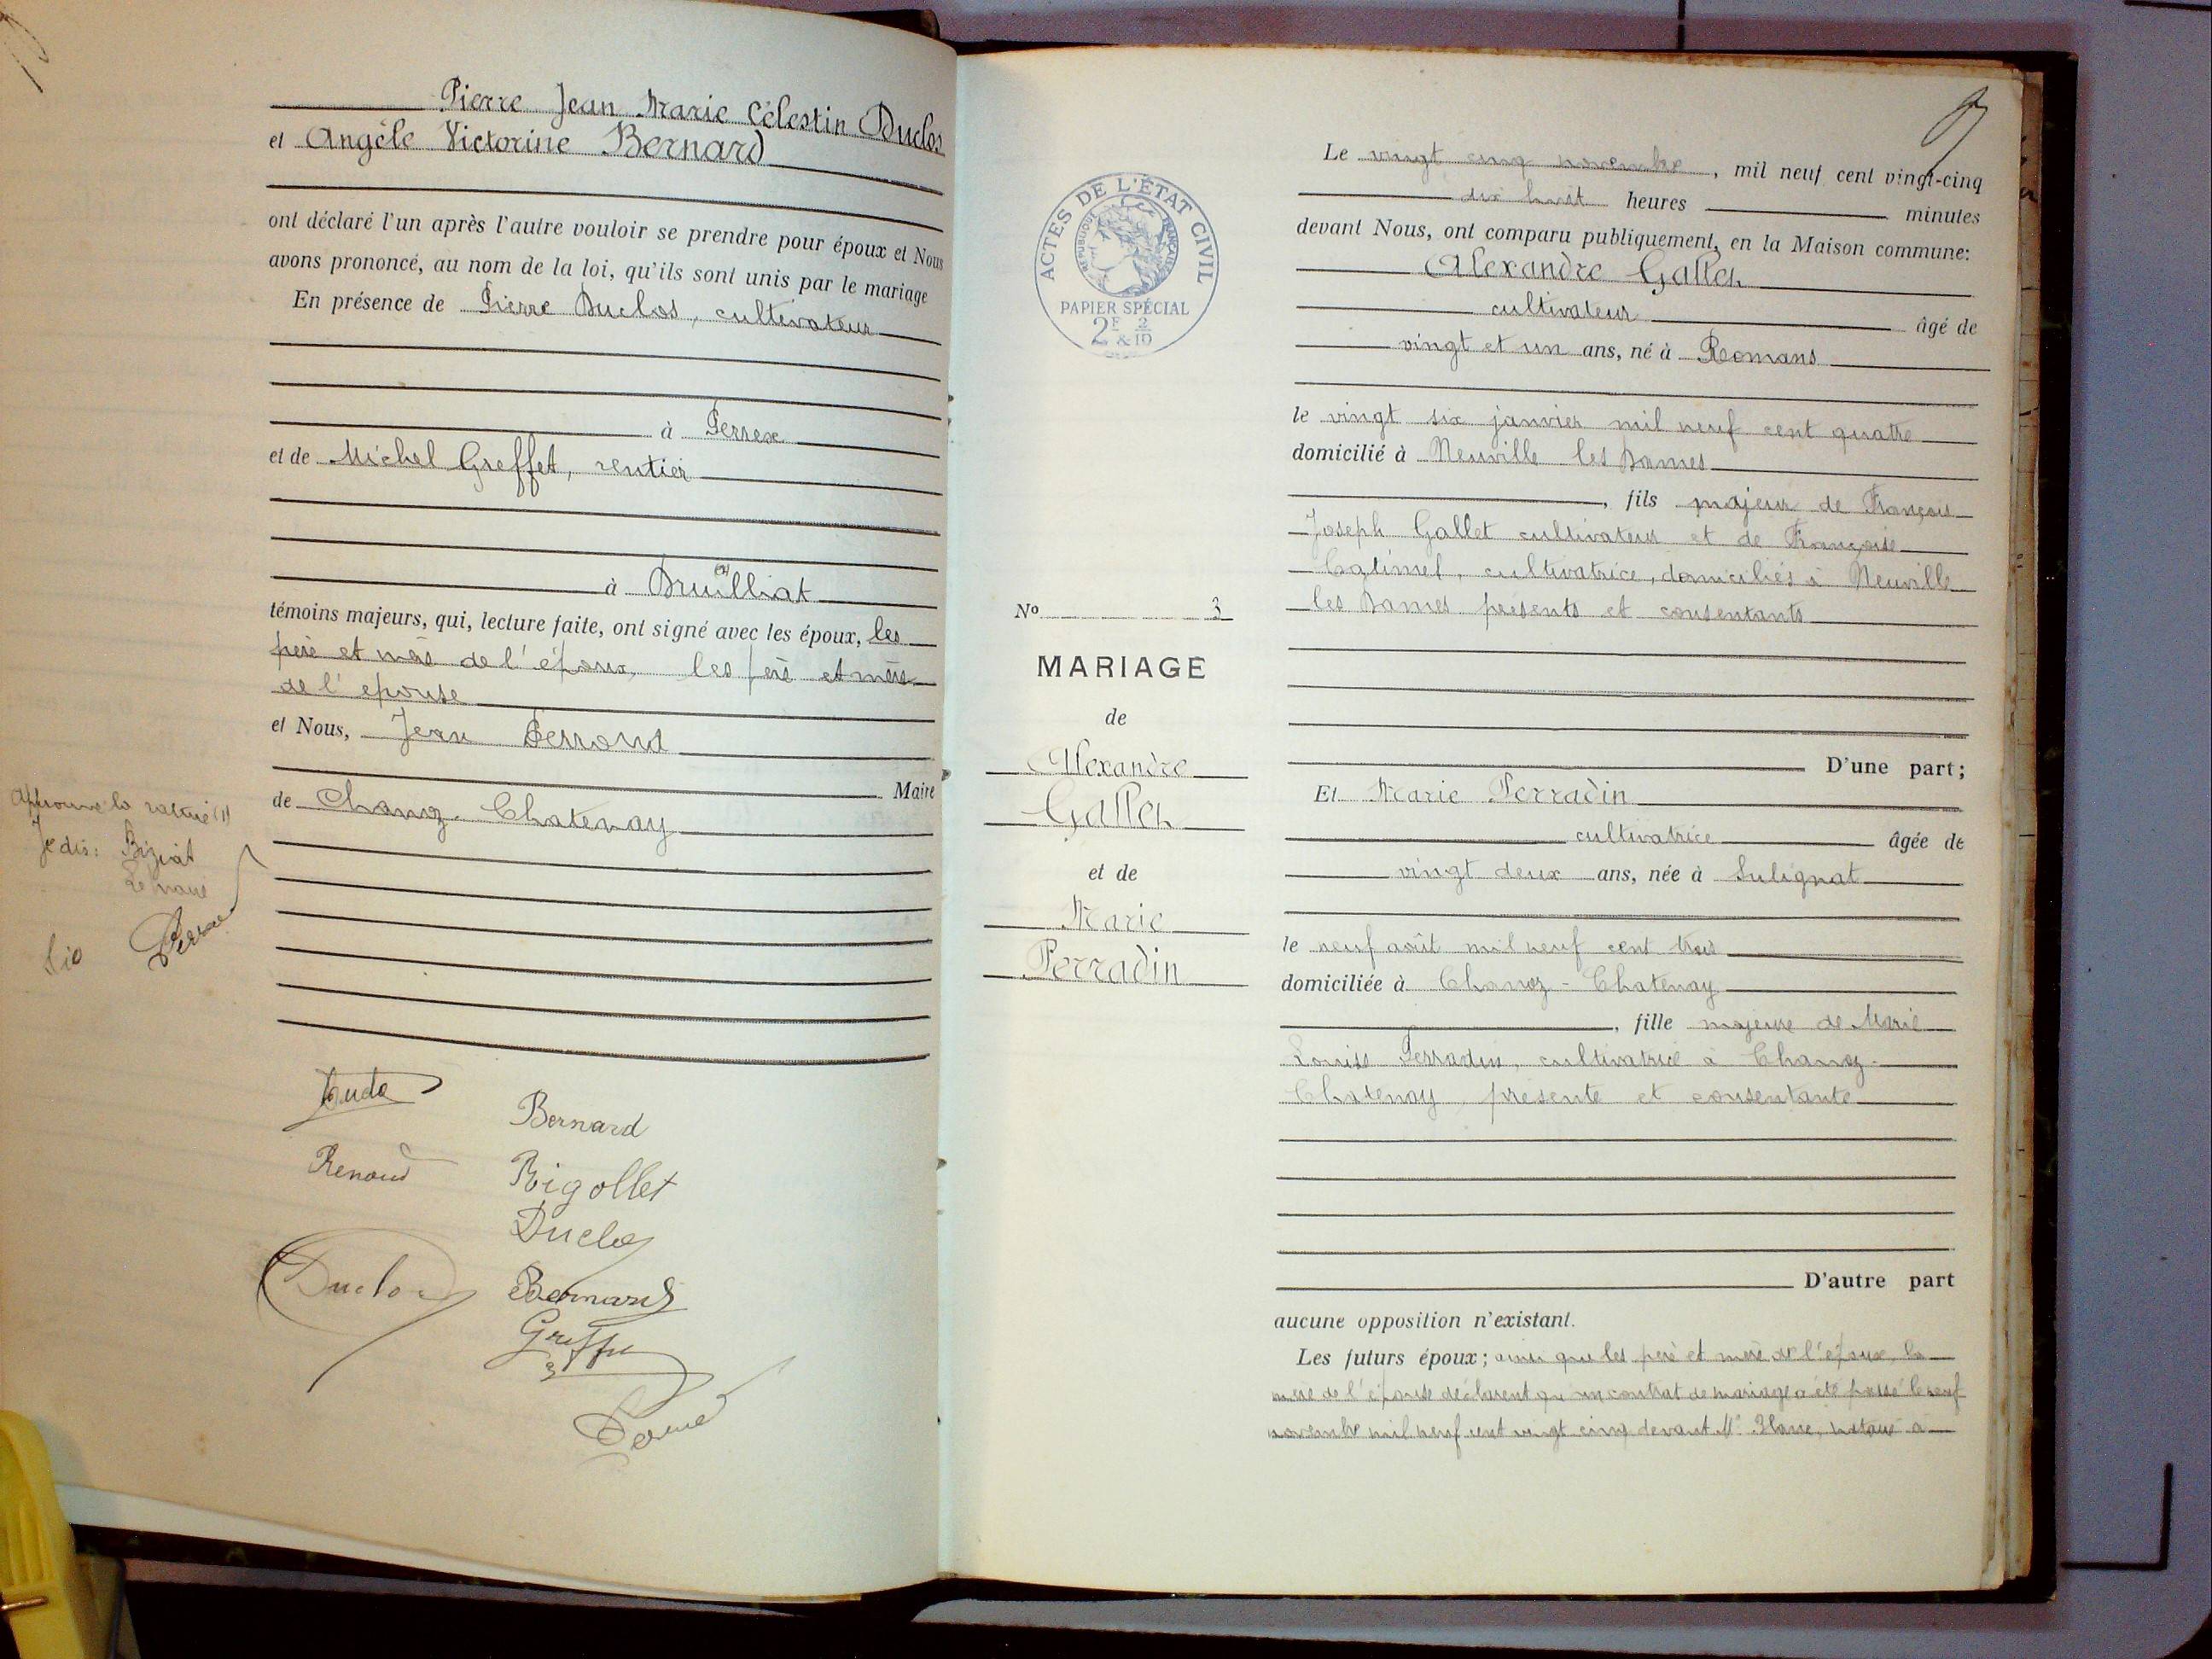 Pierre Jean Marie Célestin Duclos
et Angèle Victorine Bernard
ont déclaré l'un après l'autre vouloir se prendre pour époux et Nous
avons prononcé, au nom de la loi, qu'ils sont unis par le mariage
En présence de Pierre Duclos, cultivateur
à Perrex
et de Michel Greffet, rentier
(1)
à Druilliat
témoins majeurs, qui, lecture faite, ont signé avec les époux, les
père et mère de l'époux, les père et mère
de l'epouse
et Nous, Jean Perroud
Maire
de Chanoz-Chatenay
Approuvé la rature (1)
Je dis: Biziat
Le maire
Bernard
Renoud
Rigollet
Duclos
Duclos
Bernard
ACTES DE L'ÉTAT CIVIL
RÉPUBLIQUE FRANÇAISE
PAPIER SPÉCIAL
2F & 2/10
No 3
MARIAGE
de
Alexandre
Gallet
et de
Marie
Perradin
Le vingt cinq novembre, mil neuf cent vingt-cinq
dix huit heures minutes
devant Nous, ont comparu publiquement, en la Maison commune:
Alexandre Gallet
cultivateur âgé de
vingt et un ans, né à Romans
le vingt six janvier mil neuf cent quatre
domicilié à Neuville les Dames
, fils majeur de François
Joseph Gallet cultivateur et de Françoise
Catimel, cultivatrice, domiciliés à Neuville
les Dames présents et consentants
D'une part;
Et Marie Perradin
cultivatrice âgée de
vingt deux ans, née à Sulignat
le neuf août mil neuf cent trois
domiciliée à Chanoz-Chatenay
, fille majeure de Marie
Louise Perradin, cultivatrice à Chanoz-
Chatenay, présente et consentante
D'autre part
aucune opposition n'existant.
Les futurs époux; ainsi que les père et mère de l'époux, la
mère de l'épouse déclarent qu'un contrat de mariage a été passé le neuf
novembre mil neuf cent vingt cinq devant Me Blanc, notaire à